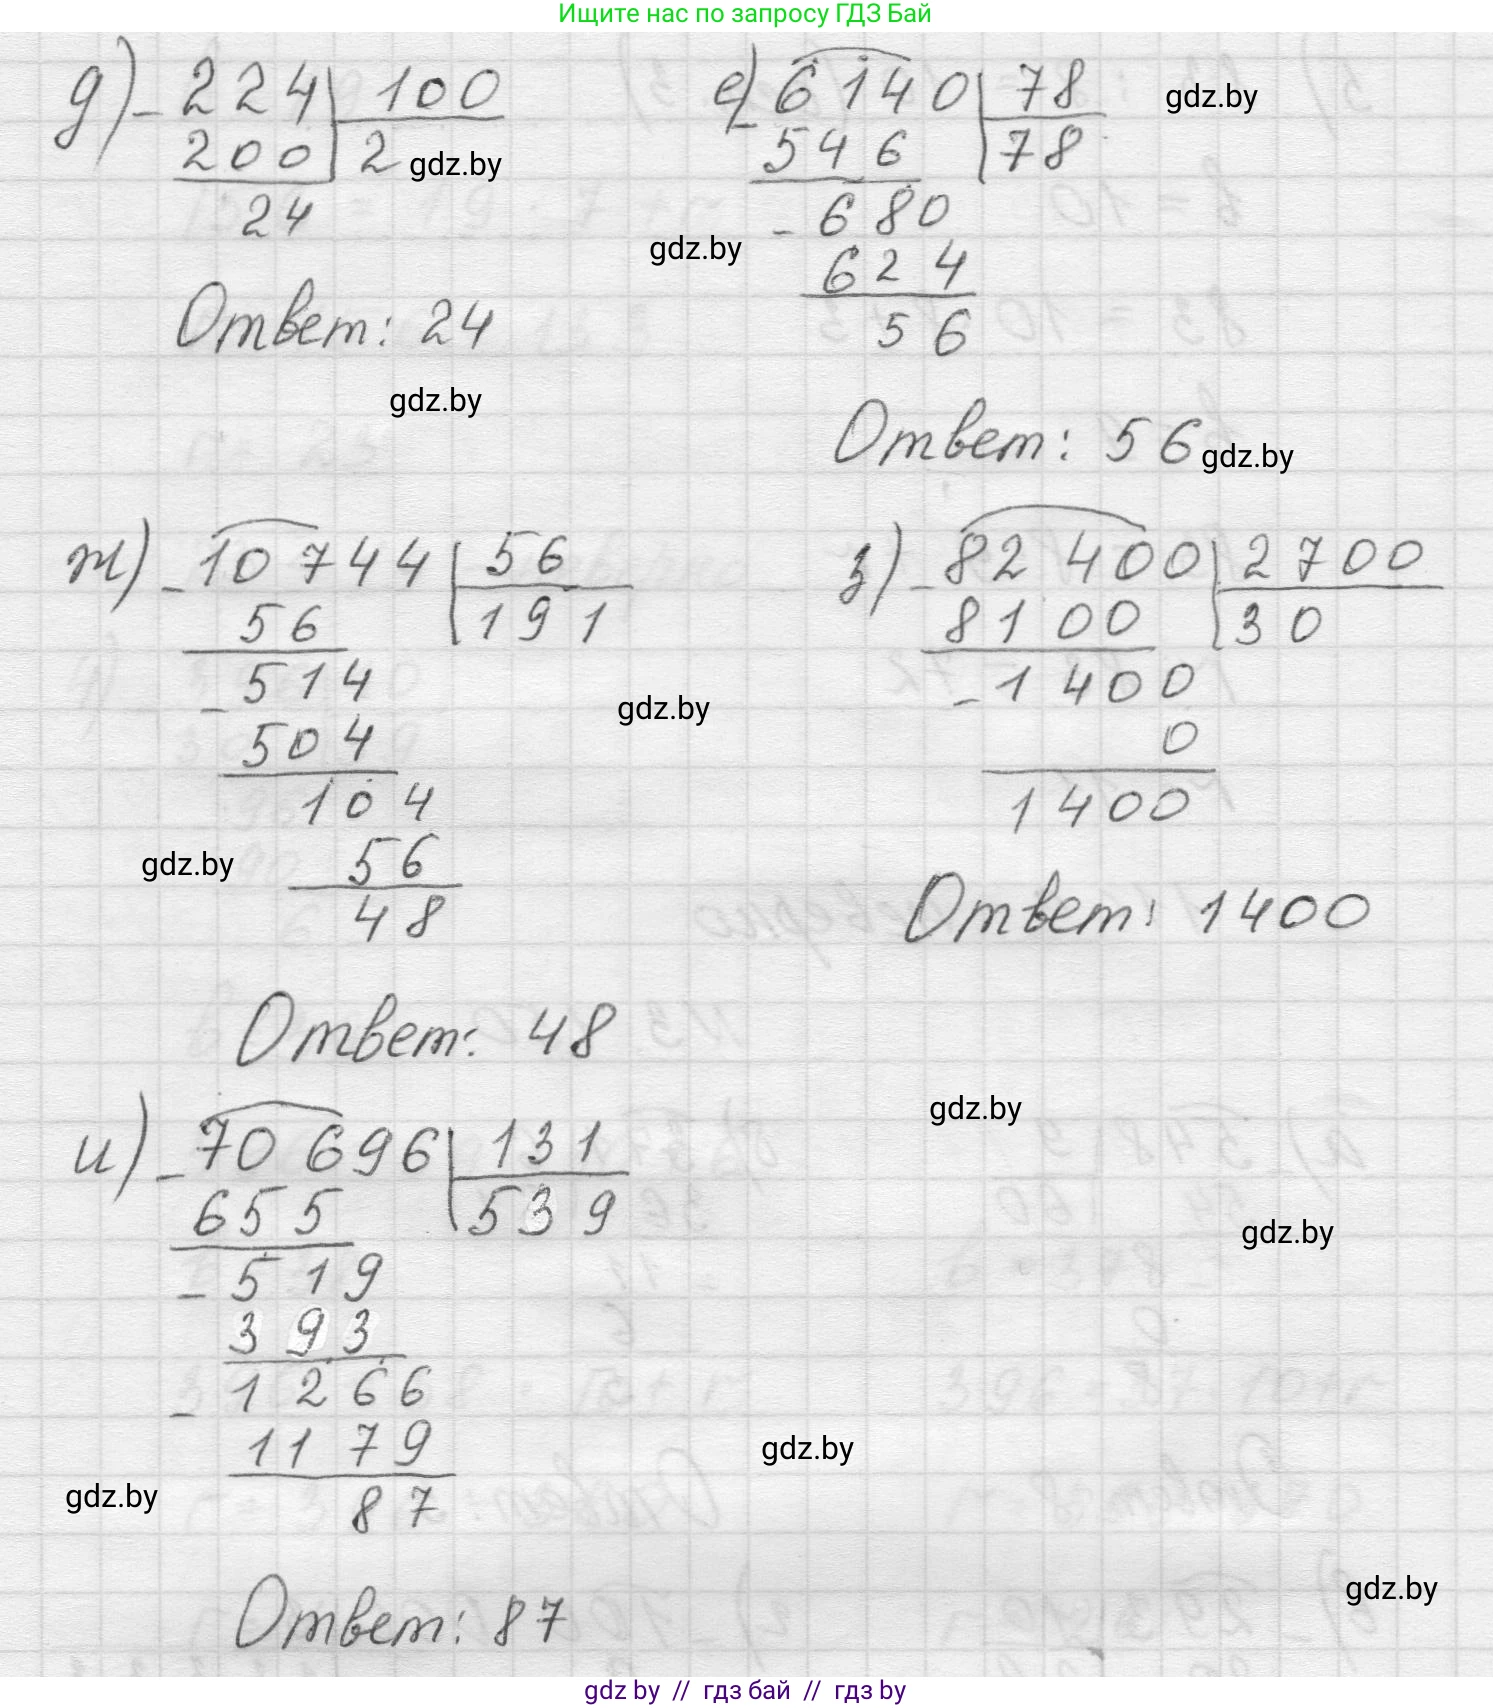 Ищите нас по запросу ГДЗ Бай
д) - 224 | 100
200 | 2
24
Ответ: 24
е) - 6140 | 78
546 | 78
- 680
624
56
Ответ: 56
ж) - 10744 | 56
56 | 191
- 514
504
104
56
48
Ответ: 48
з) - 82400 | 2700
8100 | 30
- 1400
0
1400
Ответ: 1400
и) - 70696 | 131
655 | 539
- 519
393
- 1266
1179
87
Ответ: 87
gdz.by
gdz.by
gdz.by
gdz.by
gdz.by
gdz.by
gdz.by
gdz.by
gdz.by
gdz.by
gdz.by
gdz.by
gdz by // гдз бай // гдз by